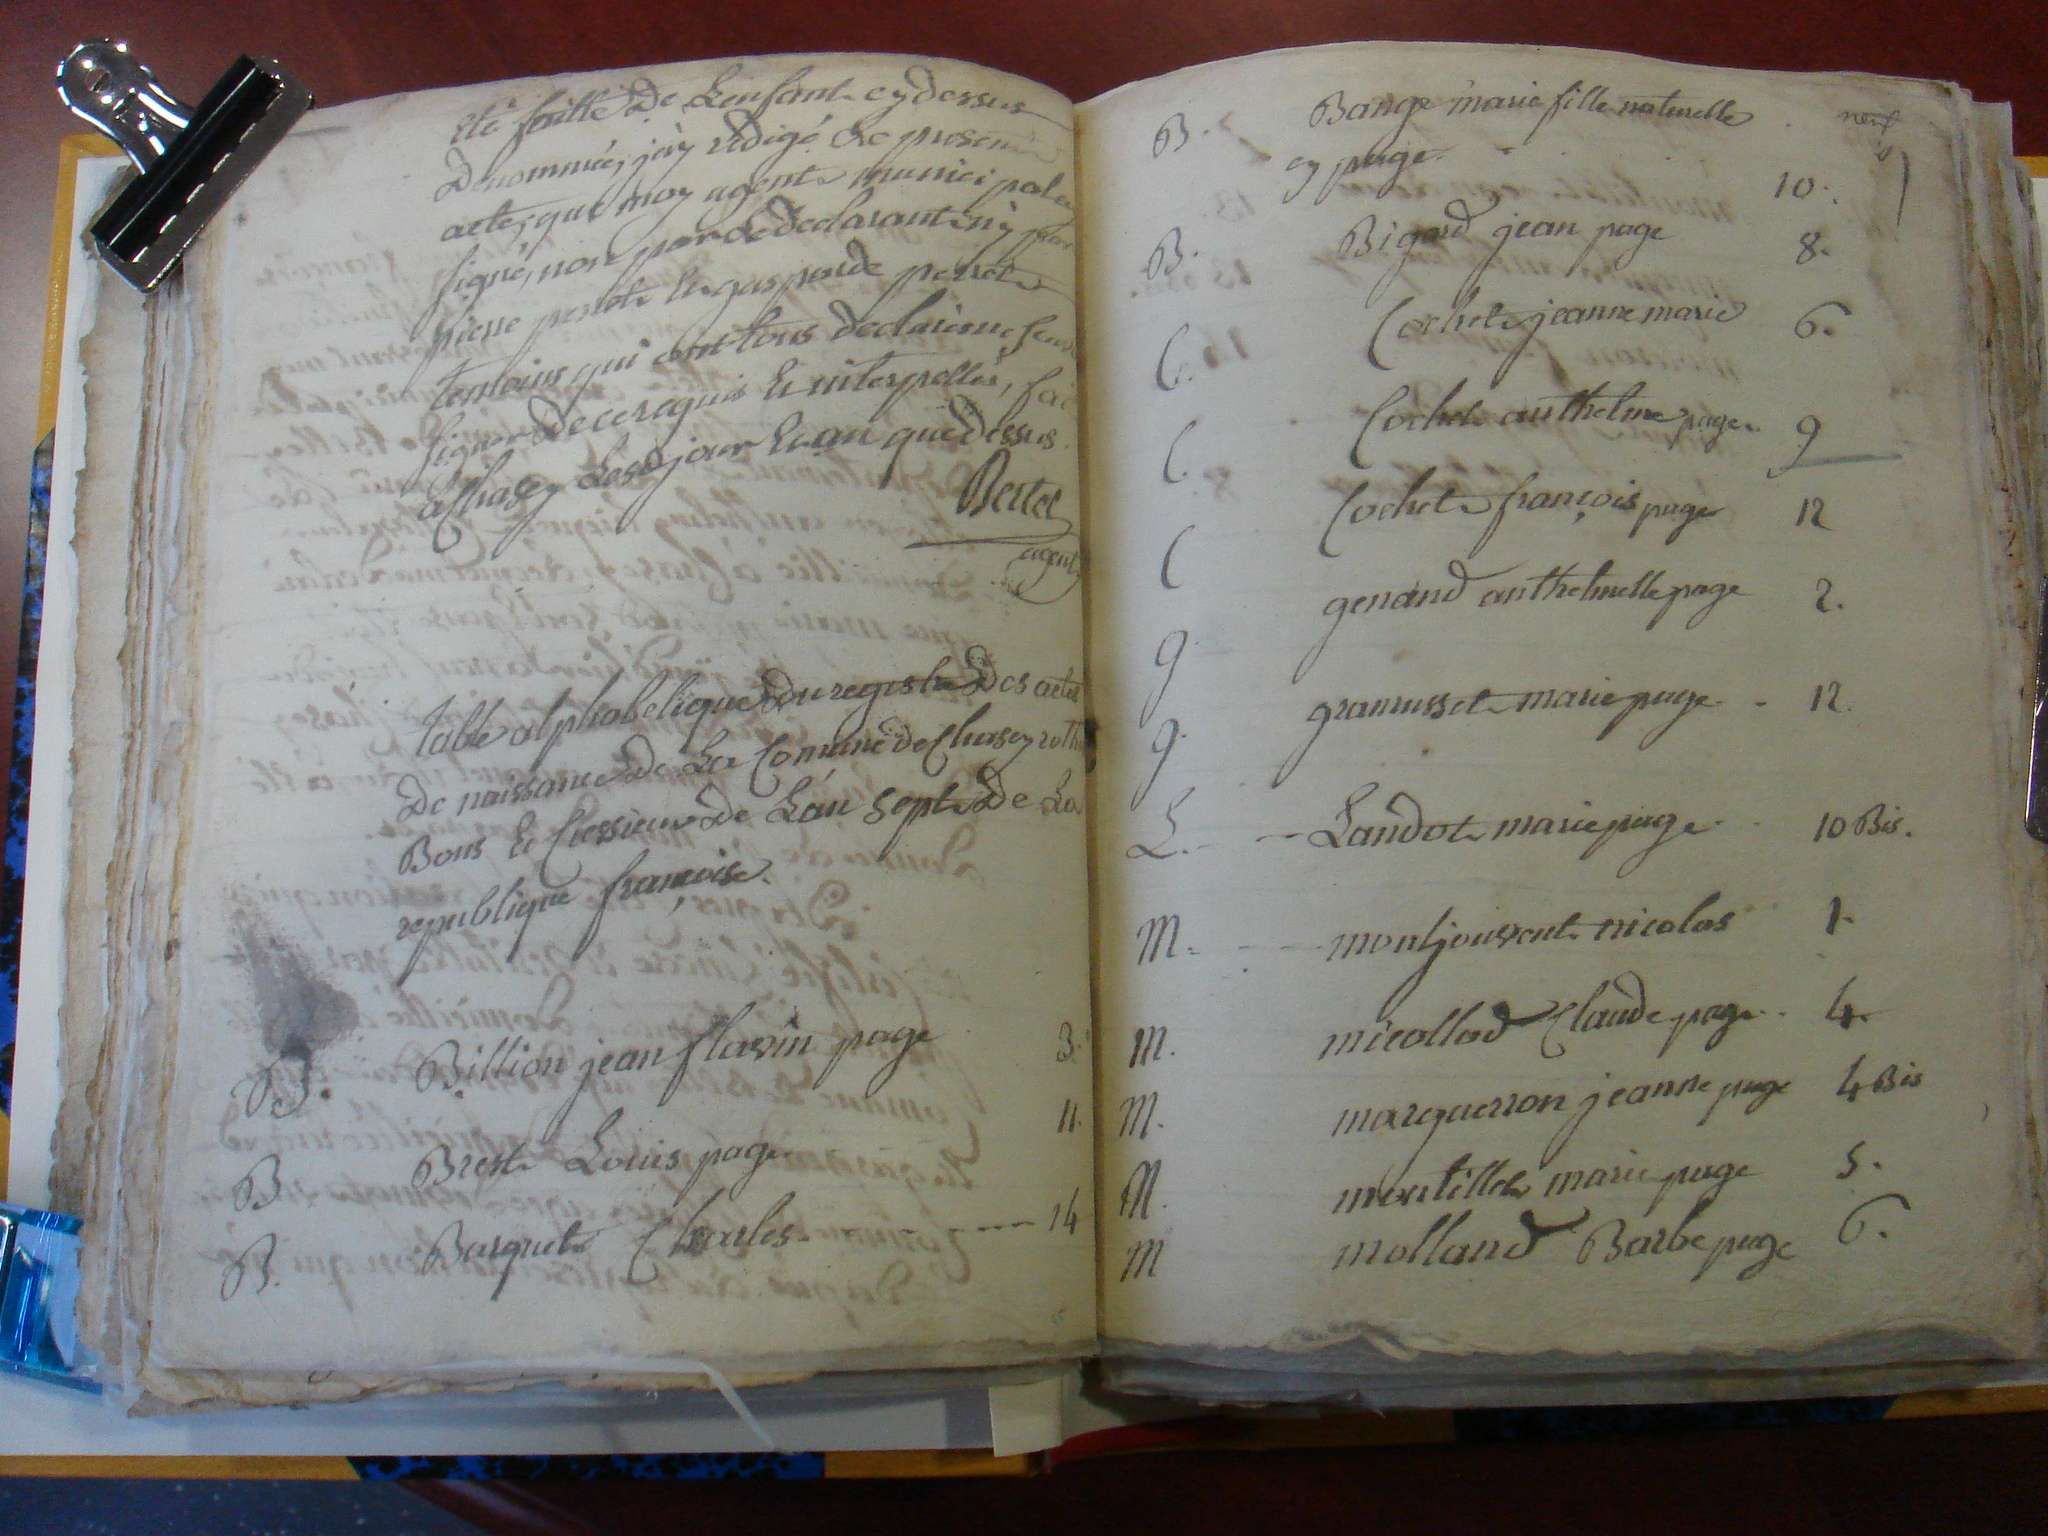 été faitte de Lenfant cydessus
dénommée, jay rédigé Le présent
acte, que moy agent municipale
signé, non par Le declarant ny par
pierre perret Et gasparde perret
temoins qui ont tous declaré ne scav
signer de ce requis Et interpellés, fai
a Chasey Lesd jour Et an que dessus
Bertet
agent
table alphabetique du registre des actes
de naissance de La Comune de Chasey
Bons Et Cressieux de Lan sept de La
republique françoise.
B. Billion jean flavin page 3.
B Brest Louis page 11.
B. Barquet Charles 14
B. Bange marie fille naturelle neuf
cy page 10.
B. Bigard jean page 8.
C. Cochet jeanne marie 6.
C. Cochet anthelme page 9
C Cochet françois page 12
g. genand anthelmette page 2.
g. gramusset marie page 12.
L. Landot marie page 10 Bis.
M. montjouvent nicolas 1.
M. micollod Claude page 4.
M. marguerron jeanne page 4 Bis
M. montillet marie page 5.
M molland Barbe page 6.